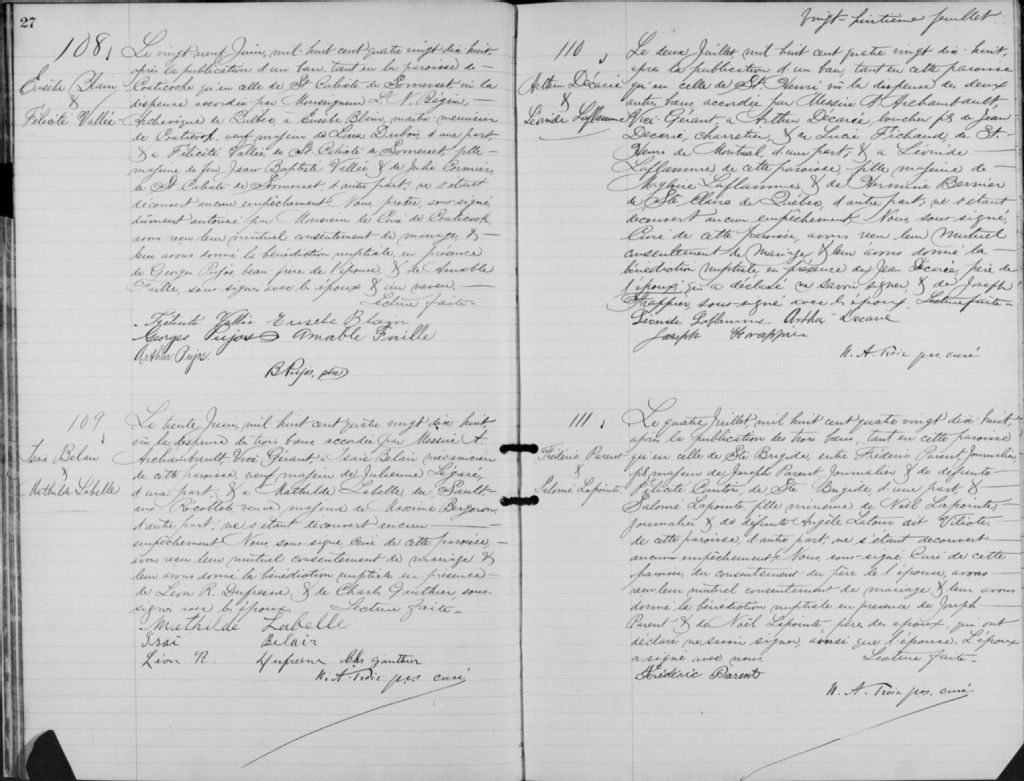 27
108,
Eusèbe Blain
&
Félicité Vallée
Le vingt neuf Juin, mil huit cent quatre vingt dix huit
après la publication d'un ban, tant en la paroisse de
Coaticooke qu'en celle de St Calixte de Somerset vu la
dispense accordée par Monseigneur L. N. Bégin,
Archevêque de Québec, à Eusèbe Blain, maître menuisier
de Coaticook, veuf majeur de Lina Dubois, d'une part
& à Félicité Vallée de St Calixte de Somerset, fille
majeure de feu Jean Baptiste Vallée & de Julie Cormier,
de St Calixte de Somerset, d'autre part; ne s'étant
découvert aucune empêchement? Nous prêtre, sous-signé,
dûment autorisé par Monsieur le Curé de Coaticook
avons reçu leur mutuel consentement de mariage, &
leur avons donné la bénédiction nuptiale, en présence
de Georges Pujos, beau-frère de l'épouse, & de Amable
Faille, sous-signés avec les époux & un neveu.
Lecture faite
Félicité Vallée Eusèbe Blain
Georges Pujos Amable Faille
Arthur Pujos
B Pujos, ptre
109,
Isaïe Belair
&
Mathilde Labelle
Le trente Juin, mil huit cent quatre vingt dix huit,
vu la dispense de trois bans accordée par Messire A.
Archambault, Vicé Gérant à Isaïe Belair mecanicien
de cette paroisse, veuf majeur de Julienne Legaré,
d'une part, & à Mathilde Labelle du Sault-
aux Récollets veuve majeure de Maxime Bergeron,
d'autre part; ne s'étant découvert aucun
empêchement? Nous sous-signé, Curé de cette paroisse
avons reçu leur mutuel consentement de mariage &
leur avons donné la bénédiction nuptiale en présence
de Léon R. Dufresne, & de Charles Gauthier, sous-
signés avec les époux. Lecture faite
Mathilde Labelle
Isai Belair
Léon R. Dufresne Chs gauthier
N. A. Troie pss. curé
Vingt-huitième feuillet
110,
Arthur Décarie
&
Léonide Laflamme
Le deux Juillet mil huit cent quatre vingt dix-huit,
après la publication d'un ban, tant en cette paroisse
qu'en celle de St. Henri vu la dispense des deux
autres bans accordée par Messire A. Archambault
Vicé Gérant, à Arthur Décarie, boucher, fils de Jean
Décarie, charretier, & de Lucie Pichaud de St-
Henri de Montréal, d'une part, & à Léonide
Laflamme de cette paroisse, fille majeure de
Magloire Laflamme & de Hermine Bernier
de Ste Claire de Québec, d'autre part, ne s'étant
découvert aucun empêchement, Nous sous-signé,
Curé de cette paroisse, avons reçu leur mutuel
consentement de mariage & leur avons donné la
bénédiction nuptiale en présence de Jean Décarie, père de
l'époux, qui a déclaré ne savoir signer, & de Joseph
Frappier, sous-signé avec les époux. Lecture faite
Léonide Laflamme Arthur Decarie
Joseph Frappier
N. A. Troie pss. curé
111,
Frédéric Parent
&
Salomé Lapointe.
Le quatre Juillet, mil huit cent quatre vingt dix-huit,
après la publication des trois bans, tant en cette paroisse
qu'en celle de Ste Brigide, entre Frédéric Parent Journalier,
fils majeur de Joseph Parent Journalier & de défunte
Félicité Comtois, de Ste Brigide, d'une part, &
Salomé Lapointe, fille mineure de Noël Lapointe
Journalier & de défunte Angèle Latour dit
de cette paroisse, d'autre part, ne s'étant découvert
aucun empêchement? Nous sous-signé Curé de cette
paroisse, du consentement du père de l'épouse, avons
reçu leur mutuel consentement de mariage & leur avons
donné la bénédiction nuptiale en présence de Joseph
Parent & de Noël Lapointe, pères des époux, qui ont
déclaré ne savoir signer, ainsi que l'épouse. L'époux
a signé avec nous. Lecture faite
Frédéric Parent
N. A. Troie pss. curé